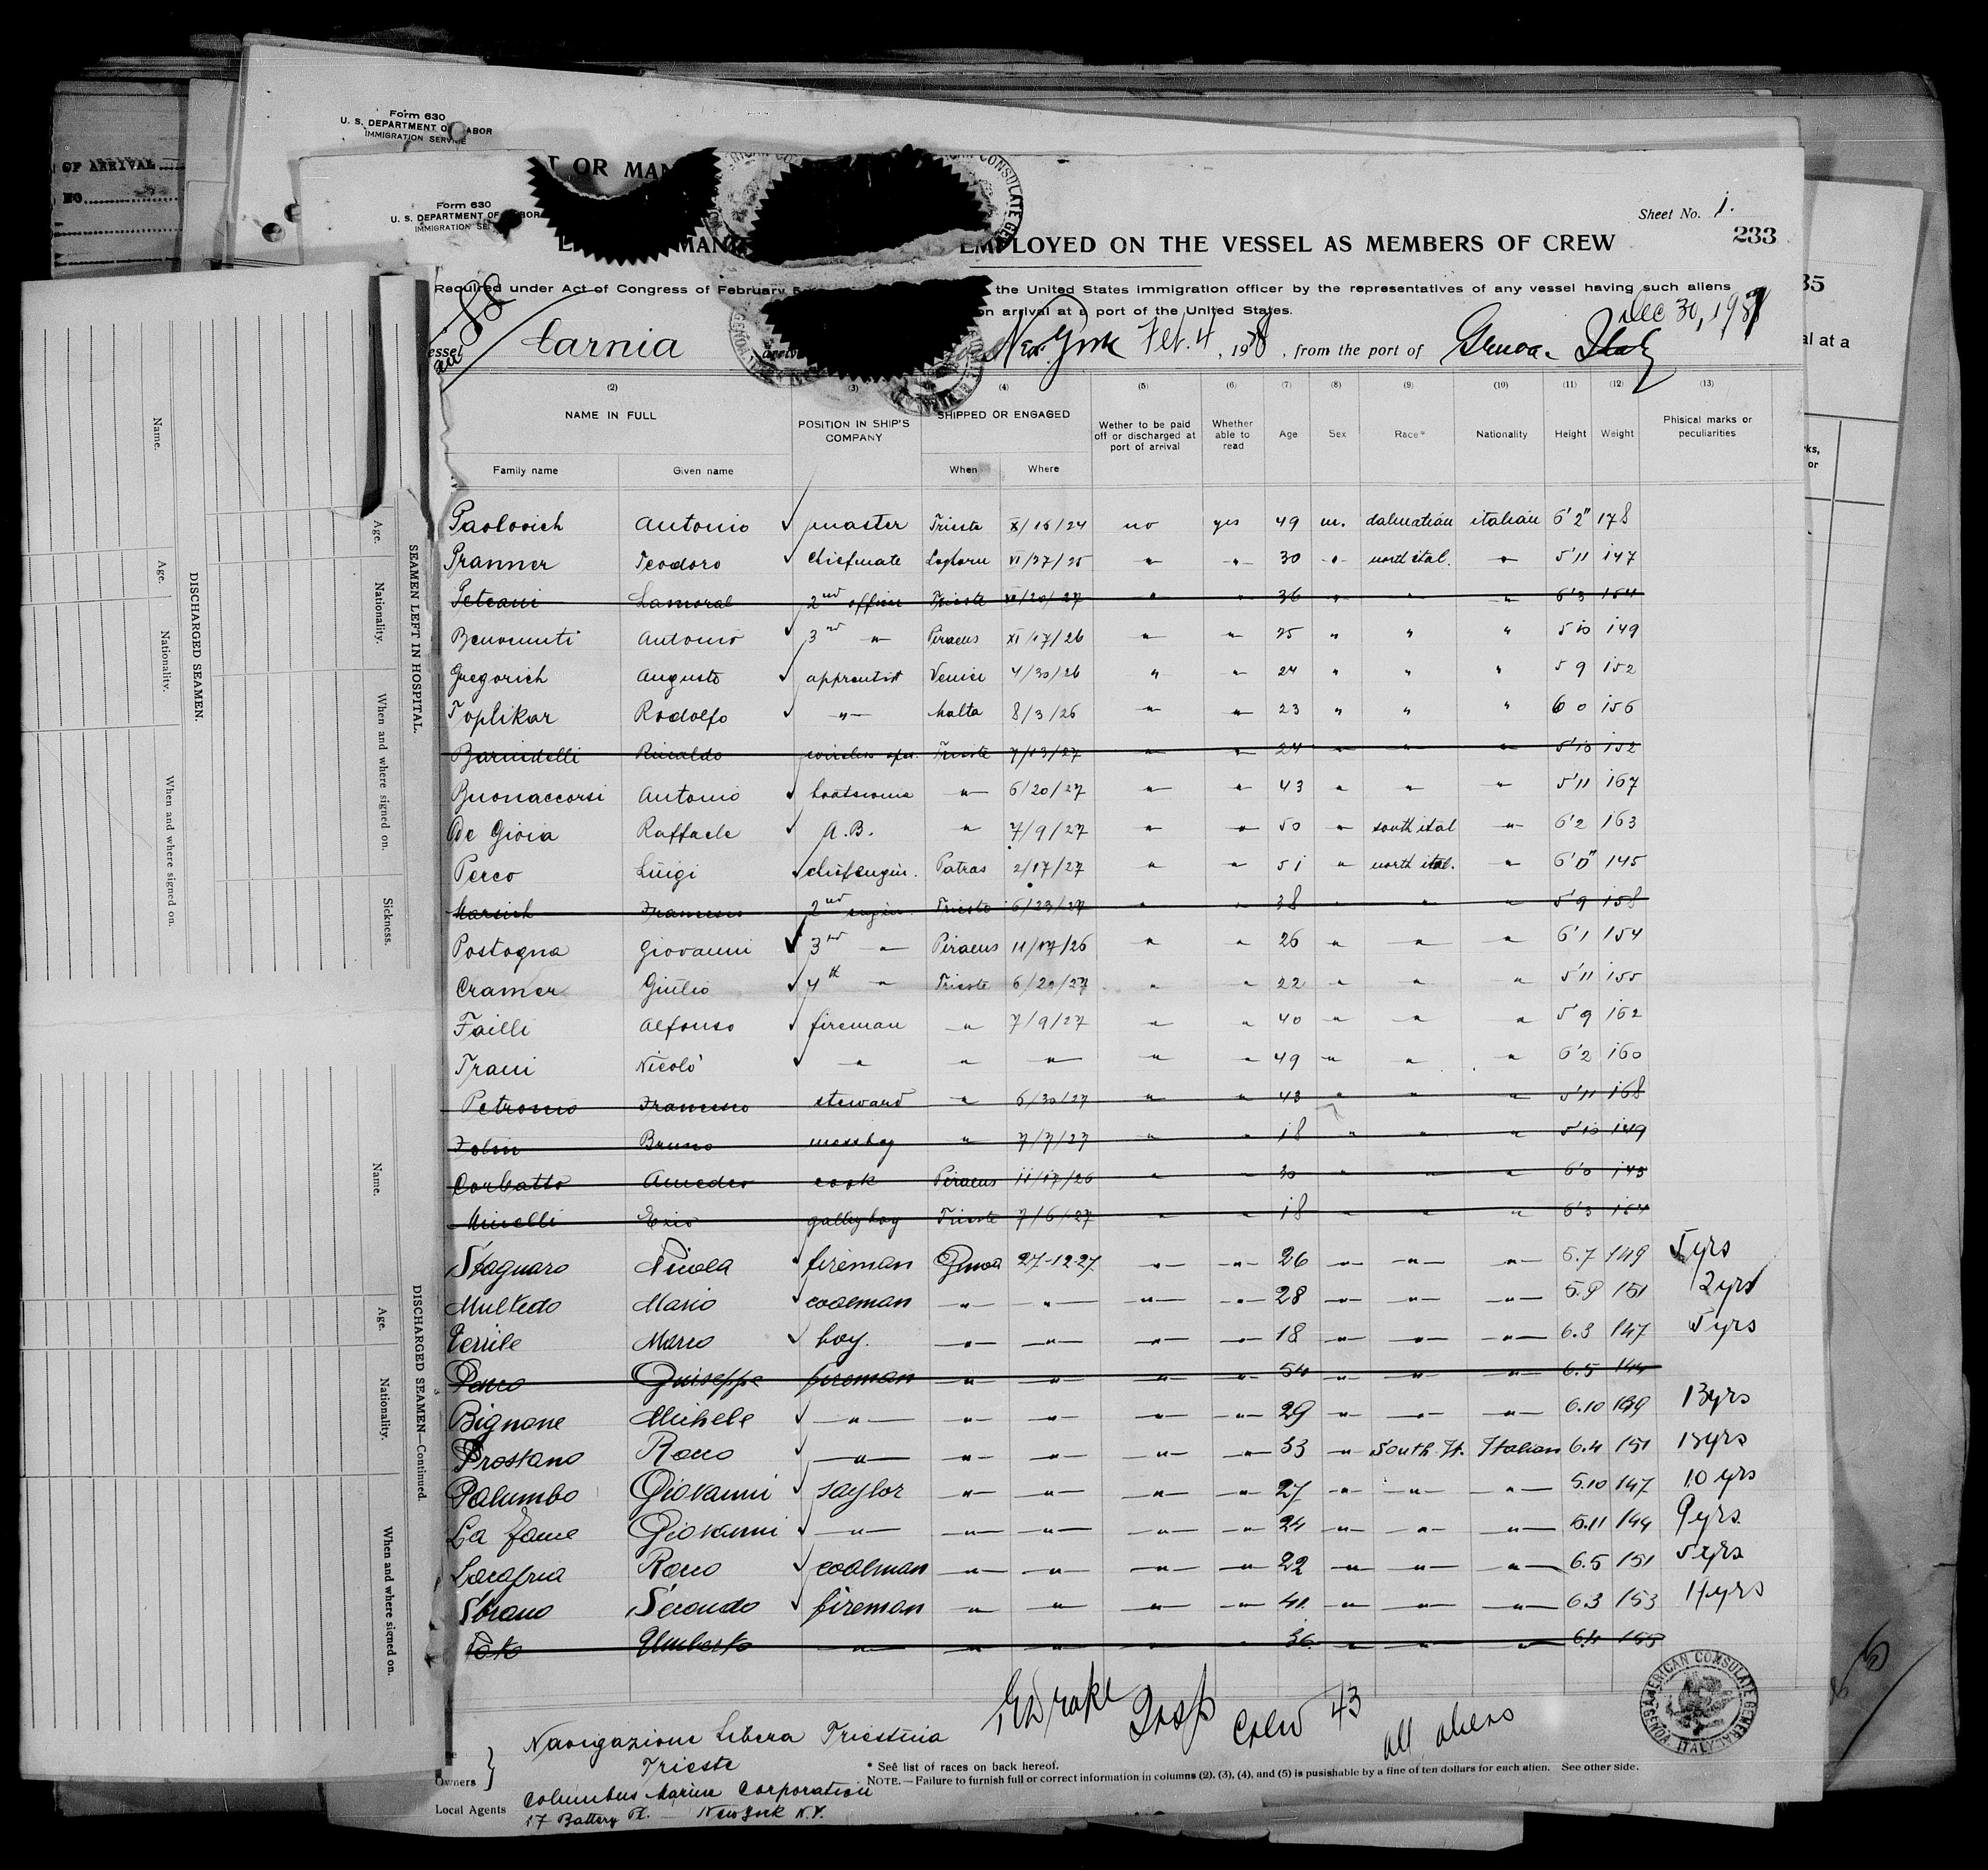 Form 630
U. S. DEPARTMENT OF LABOR
IMMIGRATION SERVICE
OF ARRIVAL
NO.
T OR MAN
Form 630
U. S. DEPARTMENT OF LABOR
IMMIGRATION SE
Sheet No. 1.
233
EMPLOYED ON THE VESSEL AS MEMBERS OF CREW
35
88
Required under Act of Congress of February 5 the United States immigration officer by the representatives of any vessel having such aliens
on arrival at a port of the United States.
Dec 30, 1927
essel Carnia New York Feb. 4, 1928, from the port of Genoa - Italy
al at a
(2) (3) (4) (5) (6) (7) (8) (9) (10) (11) (12) (13)
NAME IN FULL POSITION IN SHIP'S COMPANY SHIPPED OR ENGAGED Wether to be paid off or discharged at port of arrival Whether able to read Age Sex Race* Nationality Height Weight Phisical marks or peculiarities
Family name Given name When Where
Paolovich Antonio master Trieste X/15/24 no yes 49 m. dalmatian italian 6'2" 178
Pranner Teodoro chiefmate Leghorn VI/27/25 " " 30 " north ital. " 5'11 147
Peteani Lamoral 2nd officer Trieste 20/27 " " 36 " " " 6'3 154
Benvenuti Antonio 3rd " Piraeus XI/17/26 " " 25 " " " 5 10 149
Gregorich Augusto apprentist Venice 4/30/26 " " 24 " " " 5 9 152
Toplikar Rodolfo " Malta 8/3/26 " " 23 " " " 6 0 156
Barindelli Rinaldo wireless oper. Trieste 7/13/27 " " 24 " " " 5'10 152
Buonaccorsi Antonio boatswain " 6/20/27 " " 43 " " " 5'11 167
De Gioia Raffaele A.B. " 7/9/27 " " 50 " south ital " 6'2 163
Perco Luigi chiefengin. Patras 2/17/27 " " 51 " north ital. " 6'0" 145
Marsich Francesco 2nd engin. Trieste 6/23/27 " " 38 " " " 5'9 158
Postogna Giovanni 3rd " Piraeus 11/17/26 " " 26 " " " 6'1 154
Cramer Giulio 4th " Trieste 6/20/27 " " 22 " " " 5'11 155
Failli Alfonso fireman " 7/9/27 " " 40 " " " 5 9 162
Trani Nicolò " " " " " 49 " " " 6'2 160
Petronio Francesco steward " 6/30/27 " " 43 " " " 5'11 168
Folin Bruno messboy " 7/7/27 " " 18 " " " 5'10 149
Corbatto Amedeo cook Piraeus 11/17/26 " " 30 " " " 6'0 143
Minelli Ezio galleyboy Trieste 7/6/27 " " 18 " " " 6'3 164
Stagnaro Nicola fireman Genoa 27-12-27 " " 26 " " " 5.7 149 5 yrs
Multedo Mario coalman " " " " 28 " " " 5.9 151 2 yrs
Terrile Marco boy. " " " " 18 " " " 6.3 147 5 yrs
Giuseppe fireman " " " " 54 " " " 6.5 144
Bignone Michele " " " " " 29 " " " 6.10 13yrs
Prostano Rocco " " " " " 33 " South It. Italian 6.4 151 13yrs
Palumbo Giovanni saylor " " " " 27 " " " 5.10 147 10 yrs
La Fame Giovanni " " " " " 24 " " " 5.11 144 9yrs.
Rocco coalman " " " " 22 " " " 6.5 151 5 yrs
Secondo fireman " " " " 41 " " " 6.3 153 14yrs
Toto Umberto " " " " " 36. " " " 6.4 155
Drake Insp Crew 43 all aliens
AMERICAN CONSULATE GENERAL GENOA, ITALY
Navigazione Libera Triestina
Trieste
Owners
* See list of races on back hereof.
NOTE. — Failure to furnish full or correct information in columns (2), (3), (4), and (5) is pusishable by a fine of ten dollars for each alien. See other side.
Local Agents Columbus Marine Corporation
17 Battery Pl. — New York N.Y.
SEAMEN LEFT IN HOSPITAL.
Age. Nationality. When and where signed on. Sickness.
DISCHARGED SEAMEN.
Name. Age. Nationality. When and where signed on.
DISCHARGED SEAMEN—Continued.
Name. Age. Nationality. When and where signed on.